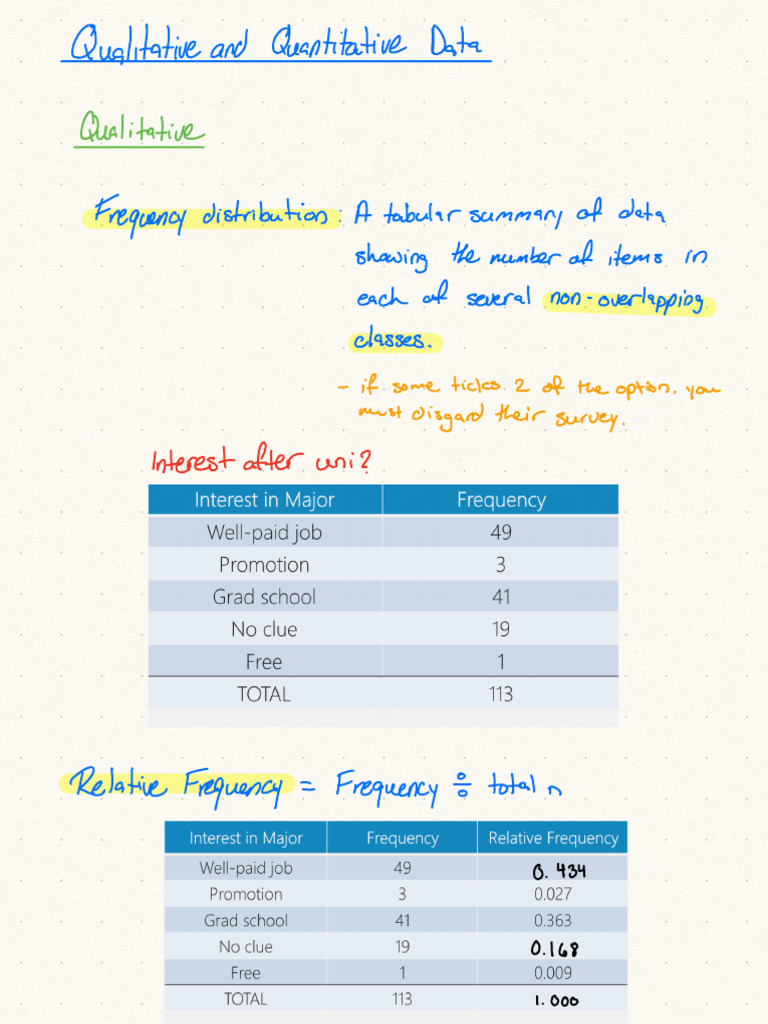 Qualitative and Quantitative Data
Qualitative
Frequency distribution: A tabular summary of data
showing the number of items in
each of several non-overlapping
classes.
- if some ticks 2 of the option, you
must disgard their survey.
Interest after uni?
Interest in Major Frequency
Well-paid job 49
Promotion 3
Grad school 41
No clue 19
Free 1
TOTAL 113
Relative Frequency = Frequency ÷ total n
Interest in Major Frequency Relative Frequency
Well-paid job 49 0.434
Promotion 3 0.027
Grad school 41 0.363
No clue 19 0.168
Free 1 0.009
TOTAL 113 1.000